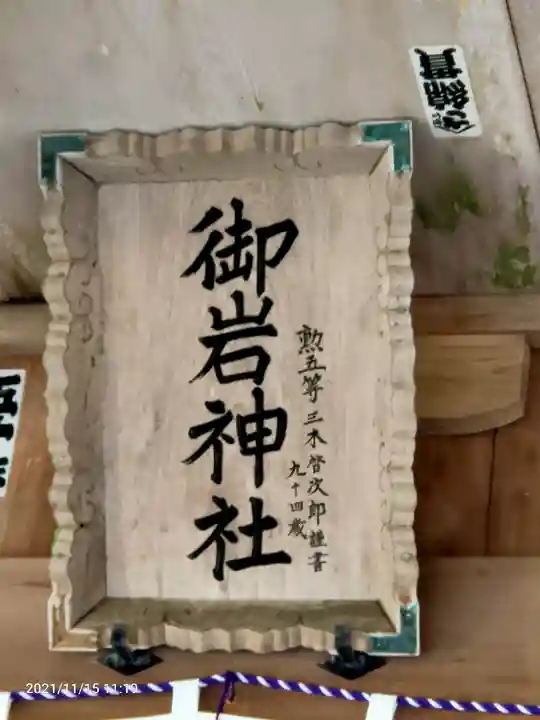 御岩神社
勲五等 三木啓次郎謹書
九十四歳
2021/11/15 11:19